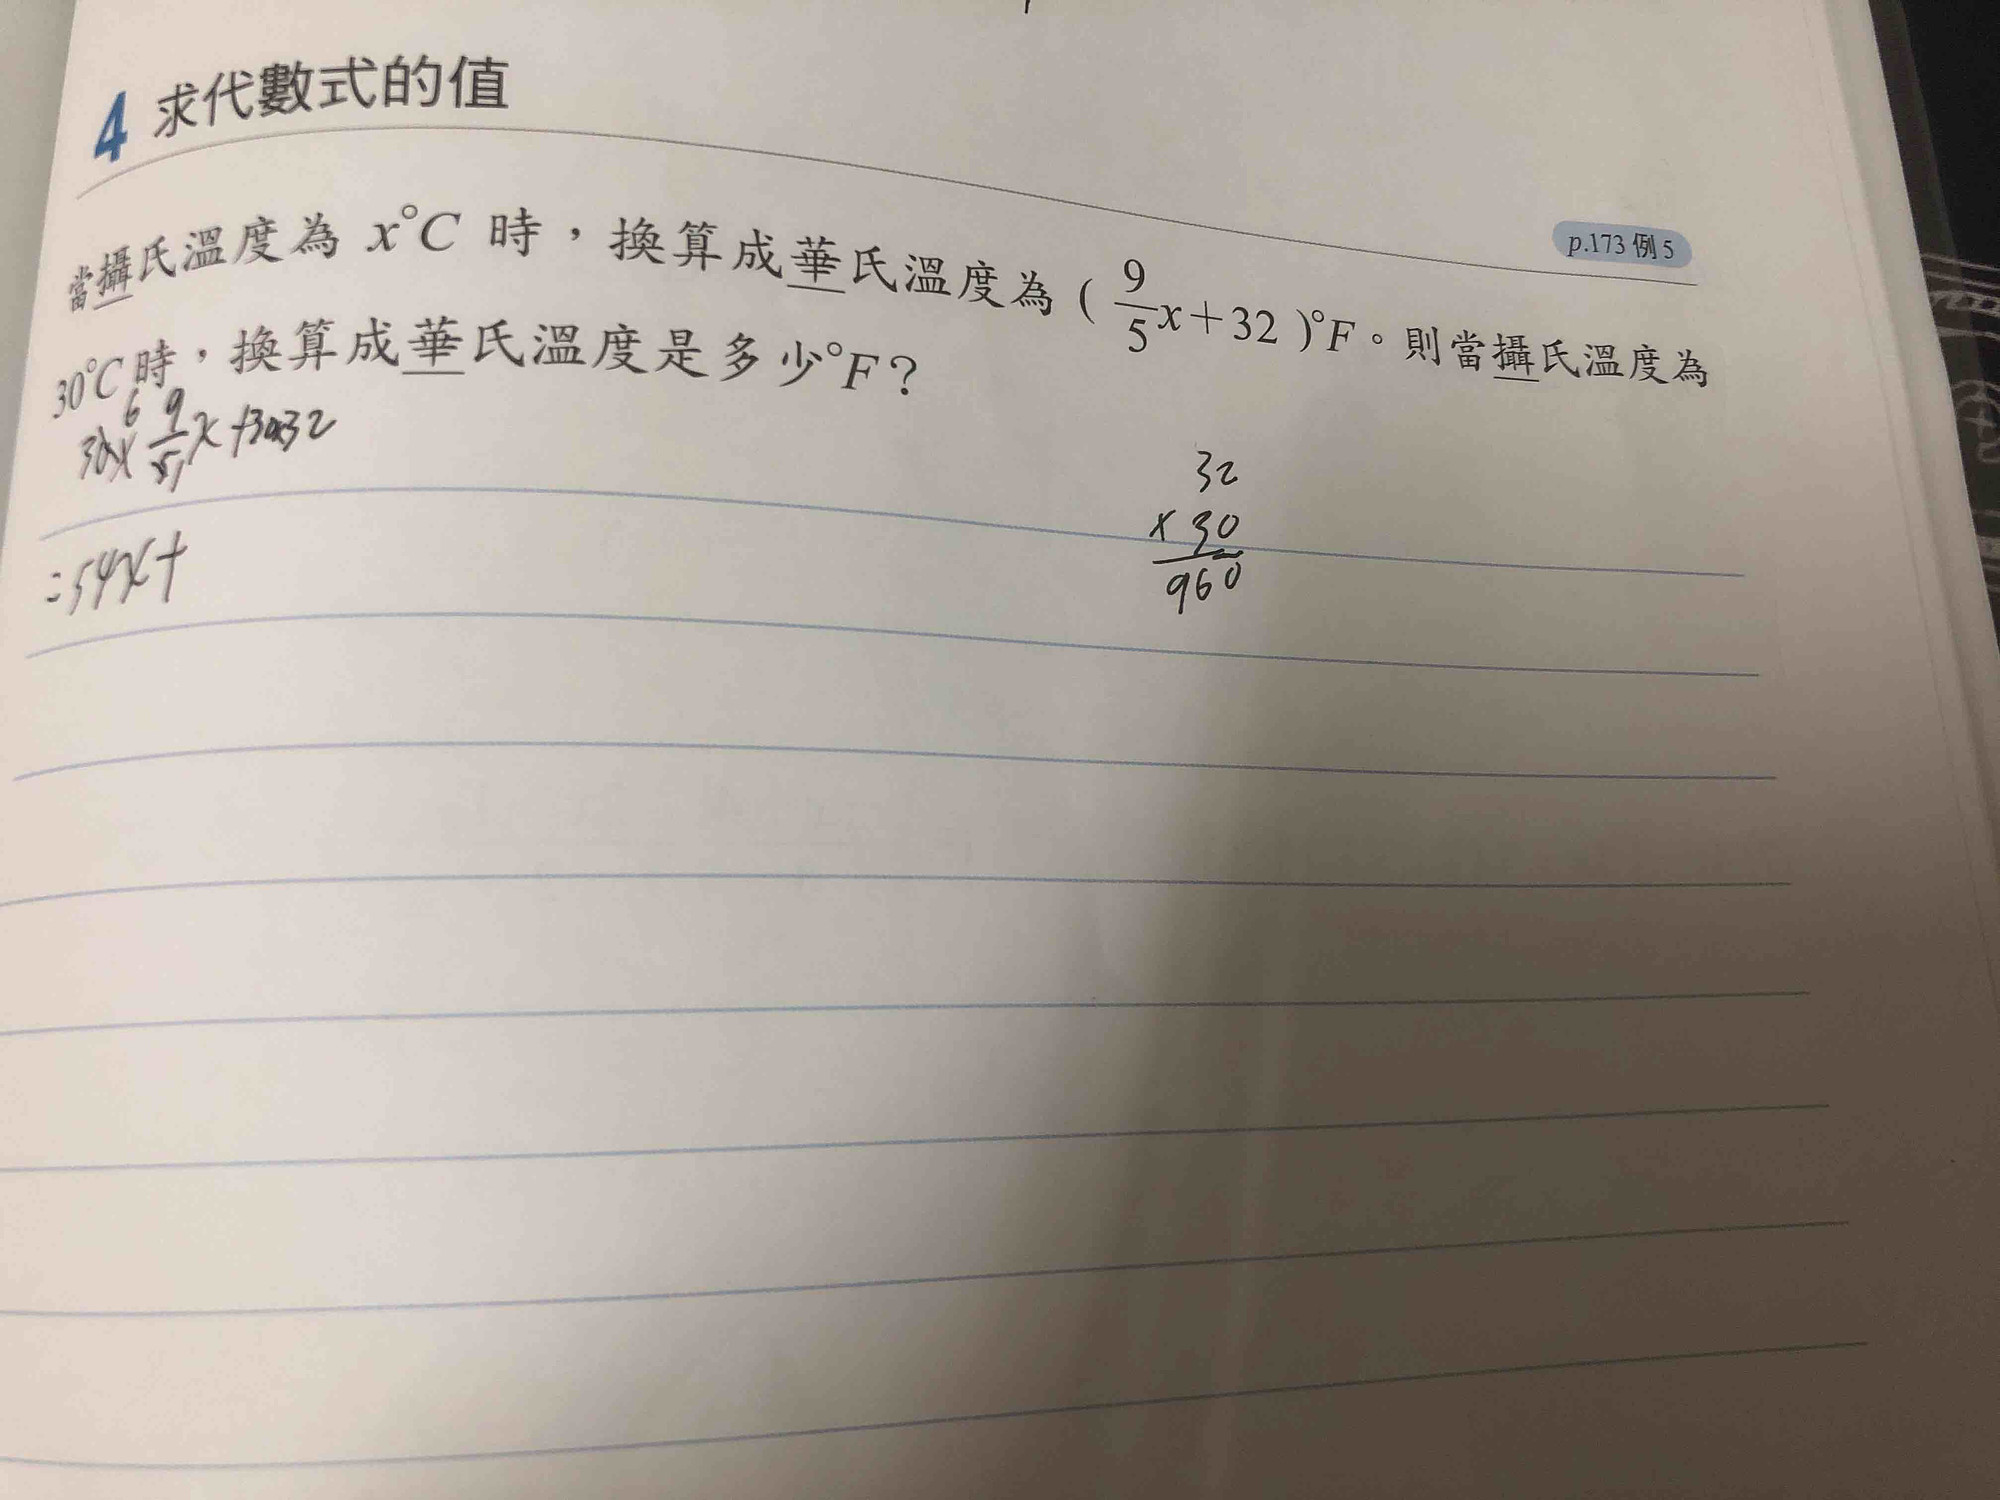 4 求代數式的值
p.173 例 5
當攝氏溫度為 x°C 時，換算成華氏溫度為 ( 9/5 x+32 )°F。則當攝氏溫度為
30°C 時，換算成華氏溫度是多少°F？
6
30× 9/5 x +30×32
=54x+
32
× 30
960